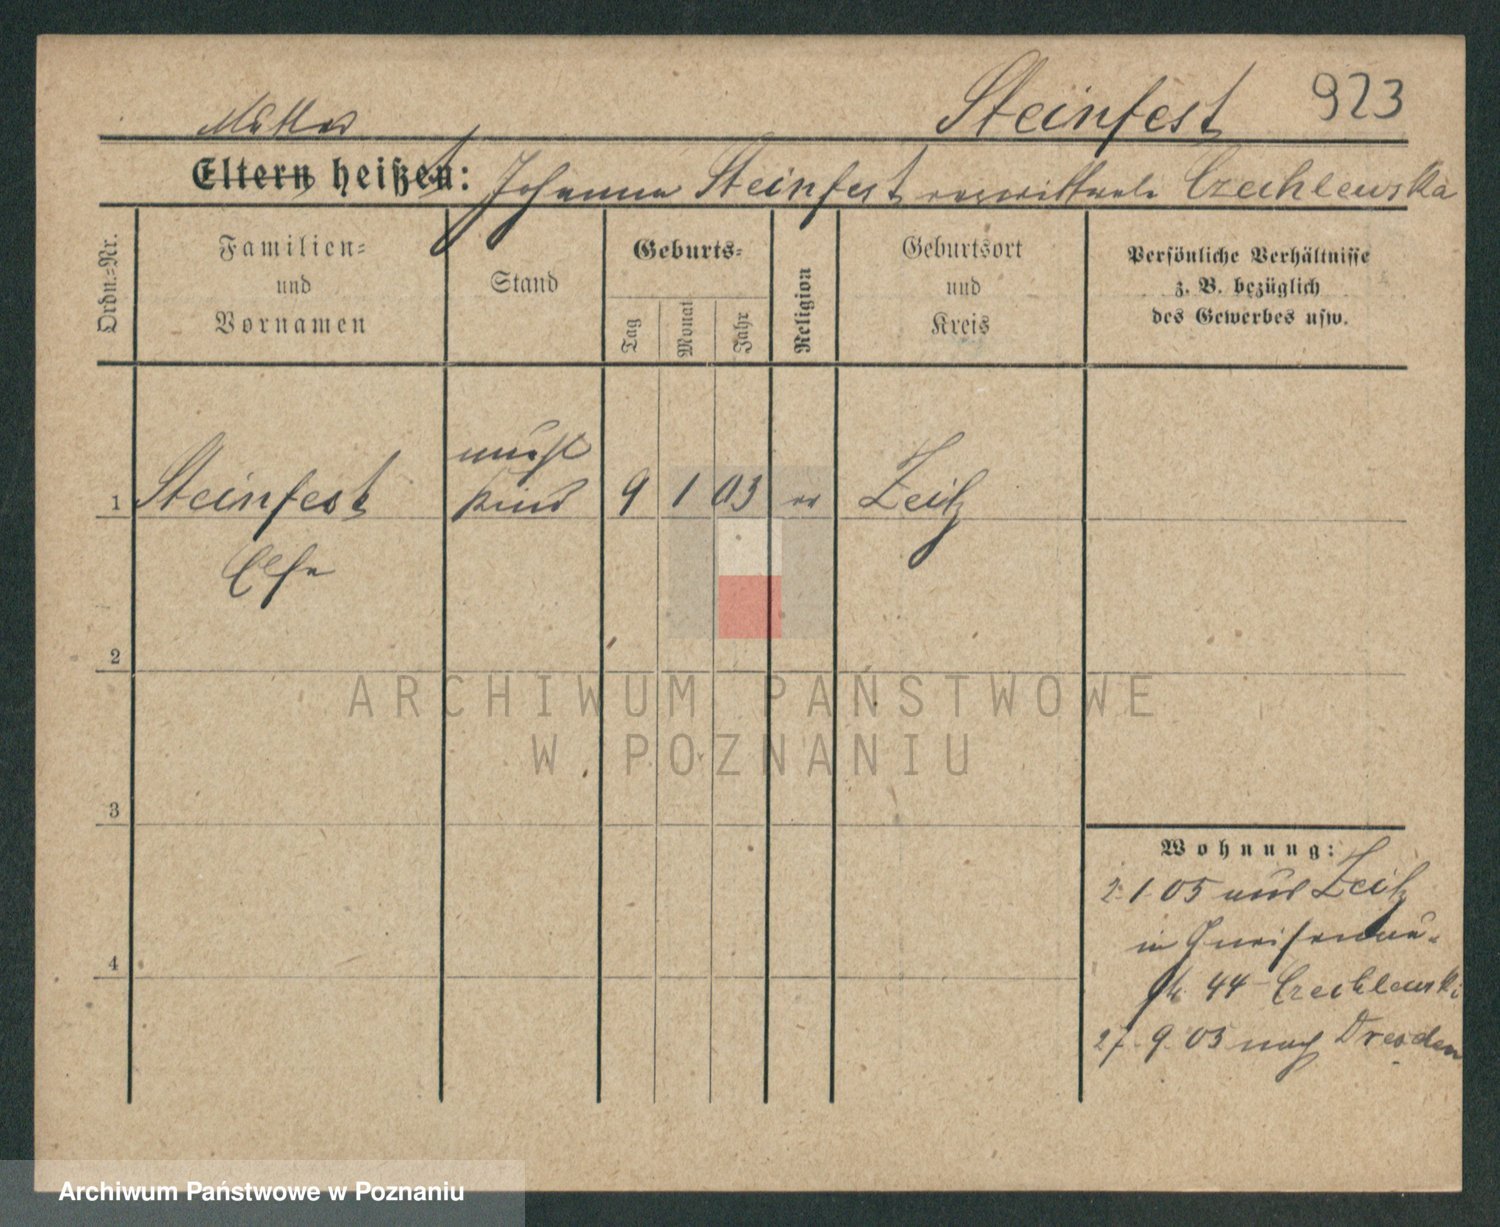 Steinfest 923
Mutter
Eltern heißt:
Johanna Steinfest verwittwete Czechlewska
Ordn.-Nr.
Familien-
und
Vornamen
Stand
Geburts-
Tag
Monat
Jahr
Religion
Geburtsort
und
Kreis
Persönliche Verhältnisse
z. B. bezüglich
des Gewerbes usw.
unehl
1 Steinfest Kind 9 1 03 ev Zeitz
Else
2
3
4
Wohnung:
2. 1. 05 aus Zeitz
in Gneisenau-
str 44 Czechlewski
27. 9. 05 nach Dresden
ARCHIWUM PAŃSTWOWE
W POZNANIU
Archiwum Państwowe w Poznaniu